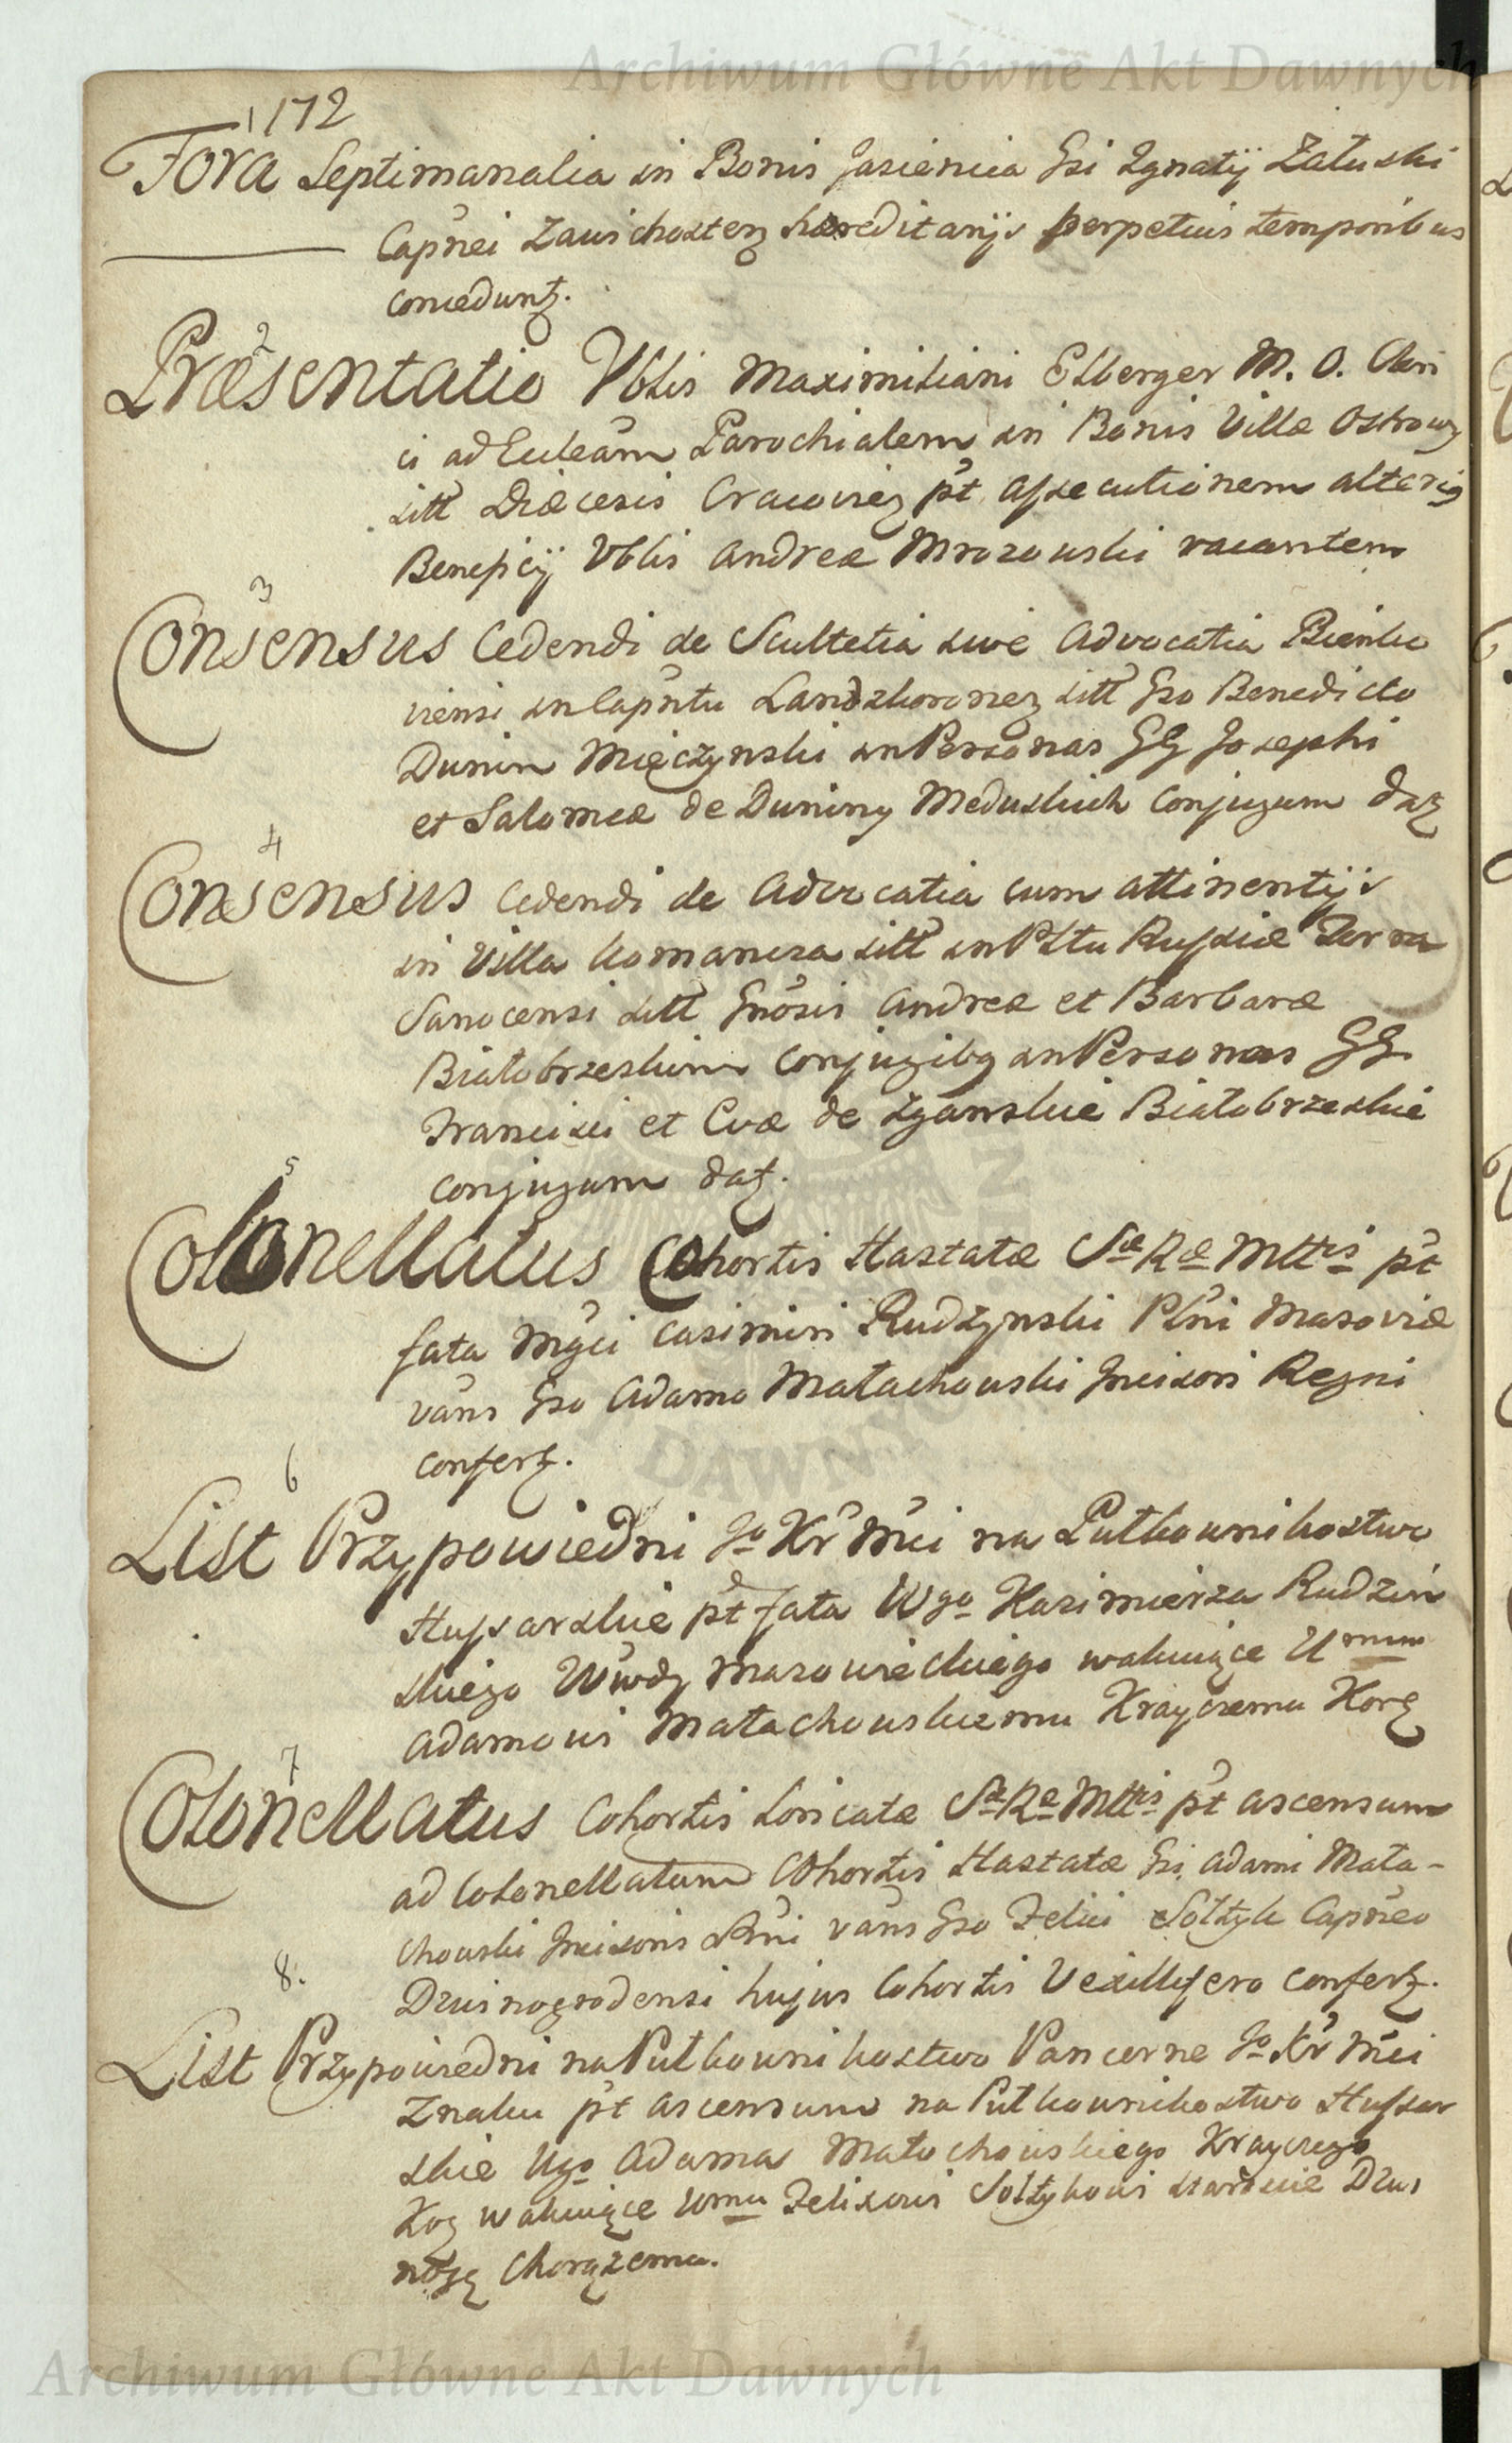 Archiwum Główne Akt Dawnych
172
1
Fora Septimanalia in Bonis Jasienica Gsi Ignatij Załuski
Capnei Zawichosten hæreditarijs perpetuis temporibus
conceduntʒ.
2
Præsentatio Vblis Maximiliani Elberger M. O. Cleri
ci ad Eccleam Parochialem in Bonis Villæ Ostrow
sitt Diæcesis Cracovien pt assecutionem alterig
Beneficij Vblis Andreæ Mrozowski vacantem
3
Consensus Cedendi de Scultetia sive Advocatia Bienko
viensi in Capntu Landzkoronen sitt Gso Benedicto
Dunin Męczynski in Personas GG Josephi
et Salomeæ de Duniny Meduskich Conjugum datʒ
4
Consensus Cedendi de Advocatia cum attinentijs
in Villa Komancza sitt in Pltu Russiæ Terra
Sanocensi sitt Gnosis Andreæ et Barbaræ
Białobrzeskim Conjugibg in Personas GG
Francisci et Evæ de Zganskie Białobrzeskie
Conjugum datʒ.
5
Colonellatus Cohortis Hastatæ Sæ Ræ Mttis pt
fata Mgci Casimiri Rudzynski Plni Masoviæ
vans Gso Adamo Małachowski Incisori Regni
confertʒ.
6
List Przypowiedni Jo Kr Mci na Pułkownikostwo
Hussarskie pt fata Wgo Kazimierza Rudzin
skiego Wwdy Mazowieckiego wakuiące Umu
Adamowi Małachowskiemu Krayczemu Korę
7
Colonellatus Cohortis Loricatæ Sæ Ræ Mttis pt ascensum
ad Colonellatum Cohortis Hastatæ Gsi Adami Mała-
chowski Incisoris Rni vans Gso Felici Sołtyk Capneo
Dzwinogrodensi hujus Cohortis Vexillifero confertʒ.
8.
List Przypowiedni na Pułkownikostwo Pancerne Jo Kr Mci
Znaku pt ascensum na Pułkownikostwo Hussar
skie Ugo Adama Małachowskiego Krayczego
Kog wakuiące Umu Felixowi Sołtykowi Staroście Dzwi
Chorążemu.
Archiwum Główne Akt Dawnych